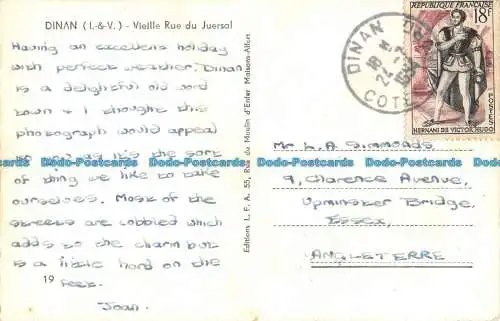 DINAN (I.-&V.) - Vieille Rue du Juersal
Having an excellent holiday
with perfect weather. Dinan
is a delightful old world
town & I thought this
photograph would appeal
to you as it's the sort
of thing we like to take
ourselves. Most of the
streets are cobbled which
adds to the charm but
is a little hard on the
feet.
Joan.
19
Editions L. F. A. 55, Rue du Moulin d'Enfer Maisons-Alfort
DINAN
18 H
22
COTES
REPUBLIQUE FRANÇAISE
18F
POSTES
HERNANI DE VICTOR HUGO
Mr. L. A. Simmonds,
9, Clarence Avenue,
Upminster Bridge,
Essex,
ANGLETERRE
Postcards DB-Postcards DB-Postcards DB-Postcards